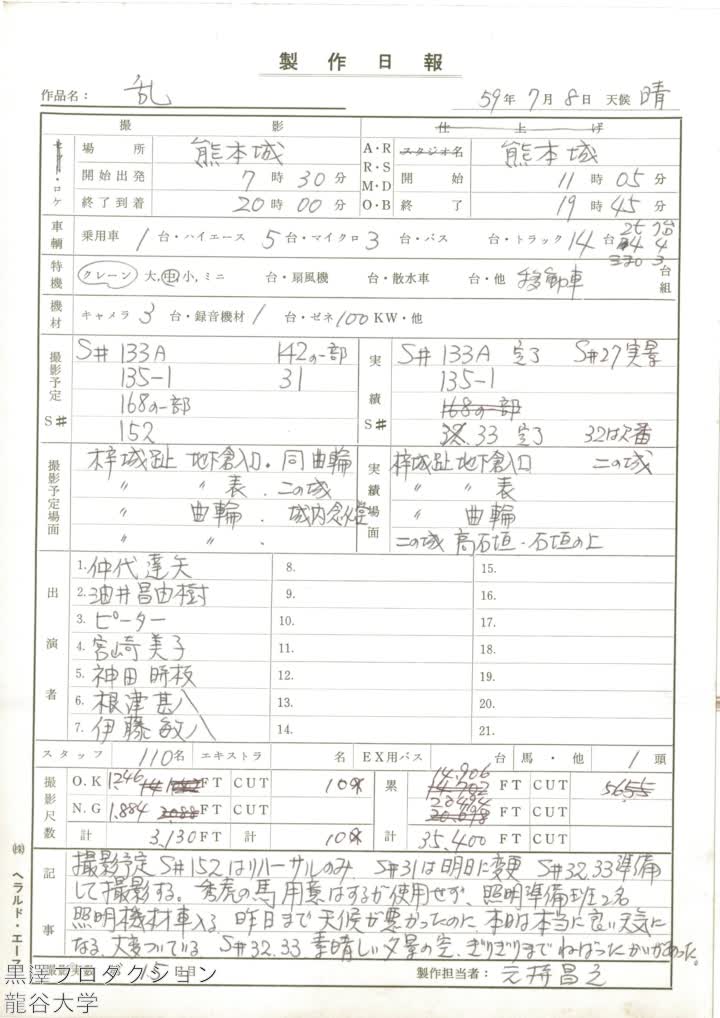 製作日報
作品名: 乱 59年7月8日 天候 晴
撮影 仕上げ
ロケ 場所 熊本城 A・R R・S M・D O・B スタジオ名 熊本城
開始出発 7時30分 開始 11時05分
終了到着 20時00分 終了 19時45分
車輌 乗用車 1台・ハイエース 5台・マイクロ 3台・バス 台・トラック 14台
特機 クレーン 大,中,小,ミニ 台・扇風機 台・散水車 台・他 移動車 台 組
機材 キャメラ 3台・録音機材 1台・ゼネ 100KW・他
撮影予定 S# S# 133A 142の一部 実績 S# S# 133A 完了 S#27実景
135-1 31 135-1
168の一部 168の一部
152 32.33 完了 32は欠番
撮影予定場面 梓城趾 地下倉入口.同曲輪 実績場面 梓城趾 地下倉入口 二の城
〃 〃 表.二の城 〃 〃 表
〃 曲輪. 〃 曲輪
〃 〃 . 二の城 高石垣・石垣の上
出演者 1.仲代達矢 8. 15.
2.油井昌由樹 9. 16.
3.ピーター 10. 17.
4.宮崎美子 11. 18.
5.神田時枝 12. 19.
6.根津甚八 13. 20.
7.伊藤敏八 14. 21.
スタッフ 110名 エキストラ 名 EX用バス 台 馬・他 1頭
撮影尺数 O.K 1,246 FT CUT 10 累計 14,906 FT CUT 565
N.G 1,884 FT CUT 20,494 FT CUT
計 3,130FT 計 10 35,400 FT CUT
記事 撮影予定 S#152はリハーサルのみ S#31は明日に変更 S#32.33準備
して撮影する。秀虎の馬 用意はするが使用せず、照明準備班2名
照明機材車入る 昨日まで天候が悪かったのに、本日は本当に良い天気に
なる、大変ついている S#32.33 素晴しい夕景の空、ぎりぎりまでねばったかいがあった。
撮影実数 15日目 製作担当者:
㈱ヘラルド・エース
黒澤プロダクション
龍谷大学